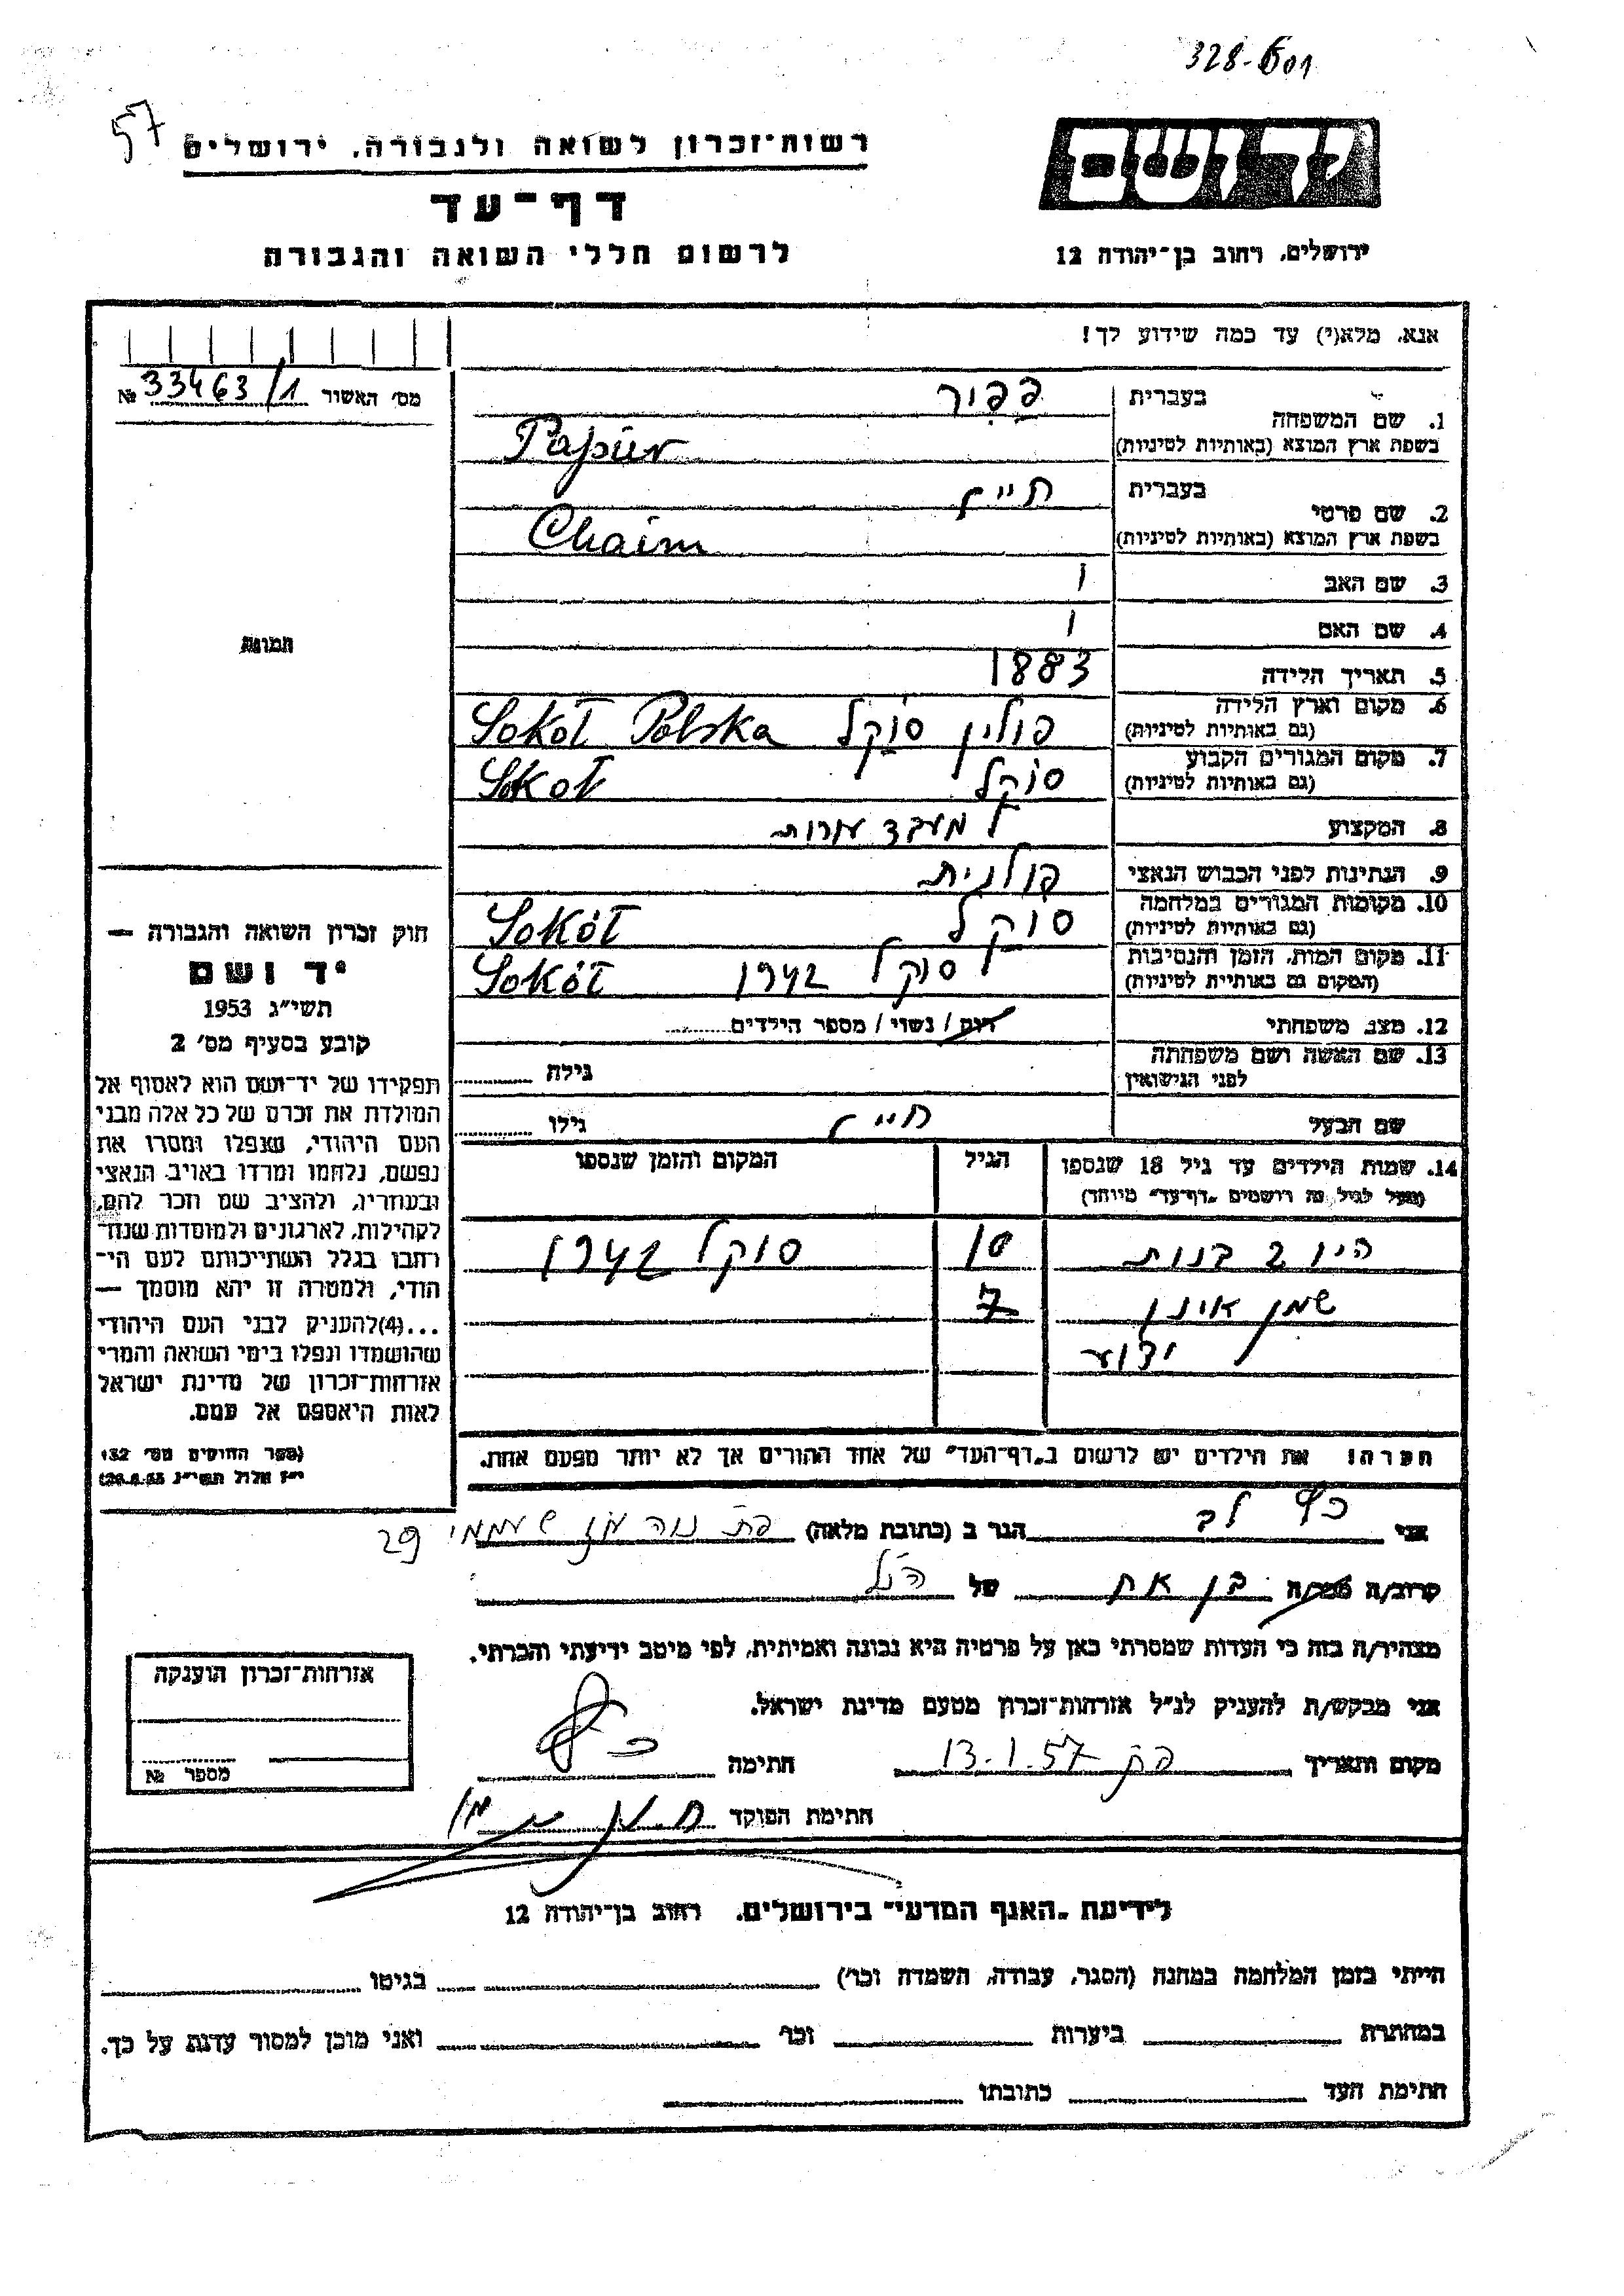 328-601
57
רשות־זכרון לשואה ולגבורה, ירושלים
דף־עד
לרשום חללי השואה והגבורה
יד ושם
ירושלים, רחוב בן־יהודה 12
אנא, מלא(י) עד כמה שידוע לך!
מס׳ האשור 33463/1 №
1. שם המשפחה
בעברית פפיר
בשפת ארץ המוצא (באותיות לטיניות) Papier
2. שם פרטי
בעברית חיים
בשפת ארץ המוצא (באותיות לטיניות) Chaim
3. שם האב
4. שם האם
5. תאריך הלידה 1883
6. מקום וארץ הלידה
(גם באותיות לטיניות) פולין סוקל Sokoł Polska
7. מקום המגורים הקבוע
(גם באותיות לטיניות) סוקל Sokoł
8. המקצוע מעבד עורות
9. הנתינות לפני הכבוש הנאצי פולנית
10. מקומות המגורים במלחמה
(גם באותיות לטיניות) סוקל Sokół
11. מקום המות, הזמן והנסיבות
(המקום גם באותיות לטיניות) סוקל 1942 Sokół
12. מצב משפחתי רווק / נשוי / מספר הילדים
13. שם האשה ושם משפחתה
לפני הנישואין גילה
שם הבעל חיים גילו
14. שמות הילדים עד גיל 18 שנספו
(מעל לגיל זה רושמים „דף־עד״ מיוחד)
הגיל
המקום והזמן שנספו
היו 2 בנות 10 סוקל 1942
שמן אינן 7
ידוע
תמונה
חוק זכרון השואה והגבורה —
יד ושם
תשי״ג 1953
קובע בסעיף מס׳ 2
תפקידו של יד־ושם הוא לאסוף אל
המולדת את זכרם של כל אלה מבני
העם היהודי, שנפלו ומסרו את
נפשם, נלחמו ומרדו באויב הנאצי
ובעוזריו, ולהציב שם וזכר להם,
לקהילות, לארגונים ולמוסדות שנח־
רבו בגלל השתייכותם לעם הי־
הודי, ולמטרה זו יהא מוסמך —
...(4)להעניק לבני העם היהודי
שהושמדו ונפלו בימי השואה והמרי
אזרחות־זכרון של מדינת ישראל
לאות היאספם אל עמם.
(ספר החוקים מס׳ 132
י״ז אלול תשי״ג 28.8.53)
הערה! את הילדים יש לרשום ב„דף־העד״ של אחד ההורים אך לא יותר מפעם אחת.
אני כץ לב הגר ב (כתובת מלאה) פת נוה 29
קרוב/ה מכר/ה בן אח של הנ״ל
מצהיר/ה בזה כי העדות שמסרתי כאן על פרטיה היא נכונה ואמיתית, לפי מיטב ידיעתי והכרתי.
אני מבקש/ת להעניק לנ״ל אזרחות־זכרון מטעם מדינת ישראל.
מקום ותאריך פת 13.1.57 חתימה
חתימת הפוקד
אזרחות־זכרון הוענקה
מספר №
לידיעת „האגף המדעי״ בירושלים, רחוב בן־יהודה 12
הייתי בזמן המלחמה במחנה (הסגר, עבודה, השמדה וכו׳) בגיטו
במחתרת ביערות וכו׳ ואני מוכן למסור עדות על כך.
חתימת העד כתובתו